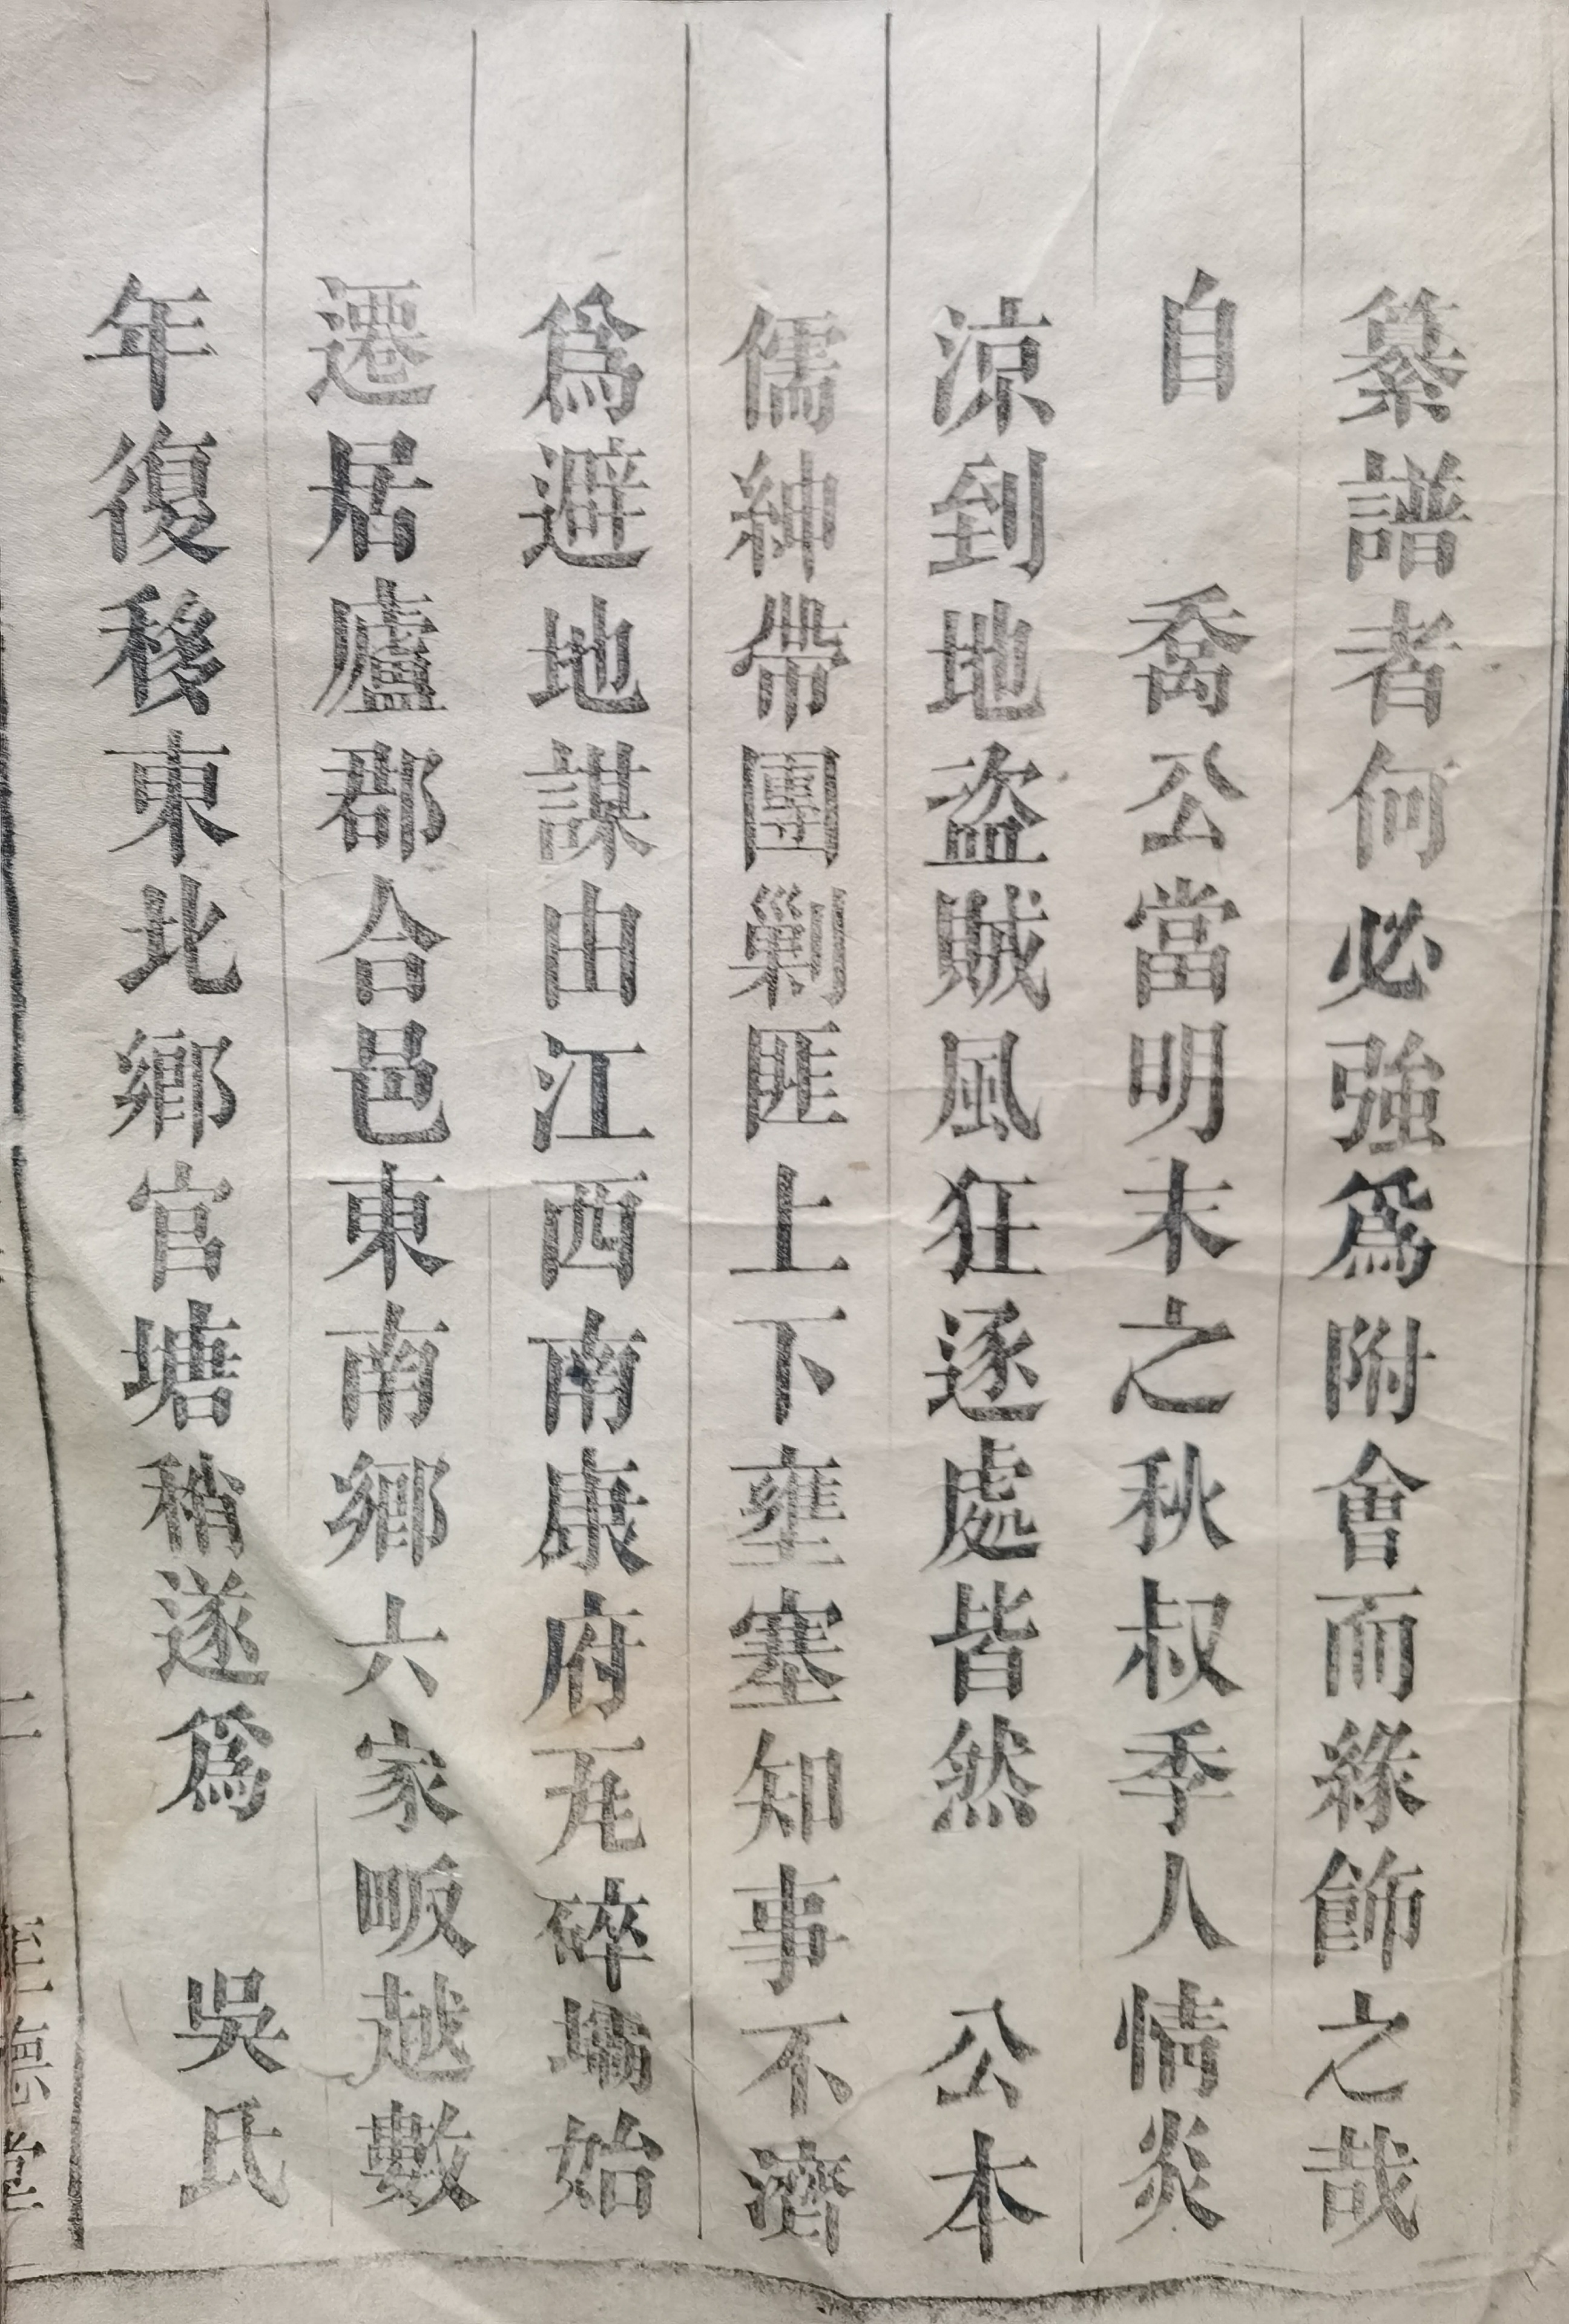 纂譜者何必強爲附會而緣飾之哉
自　喬公當明末之秋叔季人情炎
涼到地盗賊風狂逐處皆然　公本
儒紳帶團剿匪上下壅塞知事不濟
爲避地謀由江西南康府瓦碎壩始
遷居廬郡合邑東南鄉六家畈越數
年復移東北鄉官塘稍遂爲　吳氏